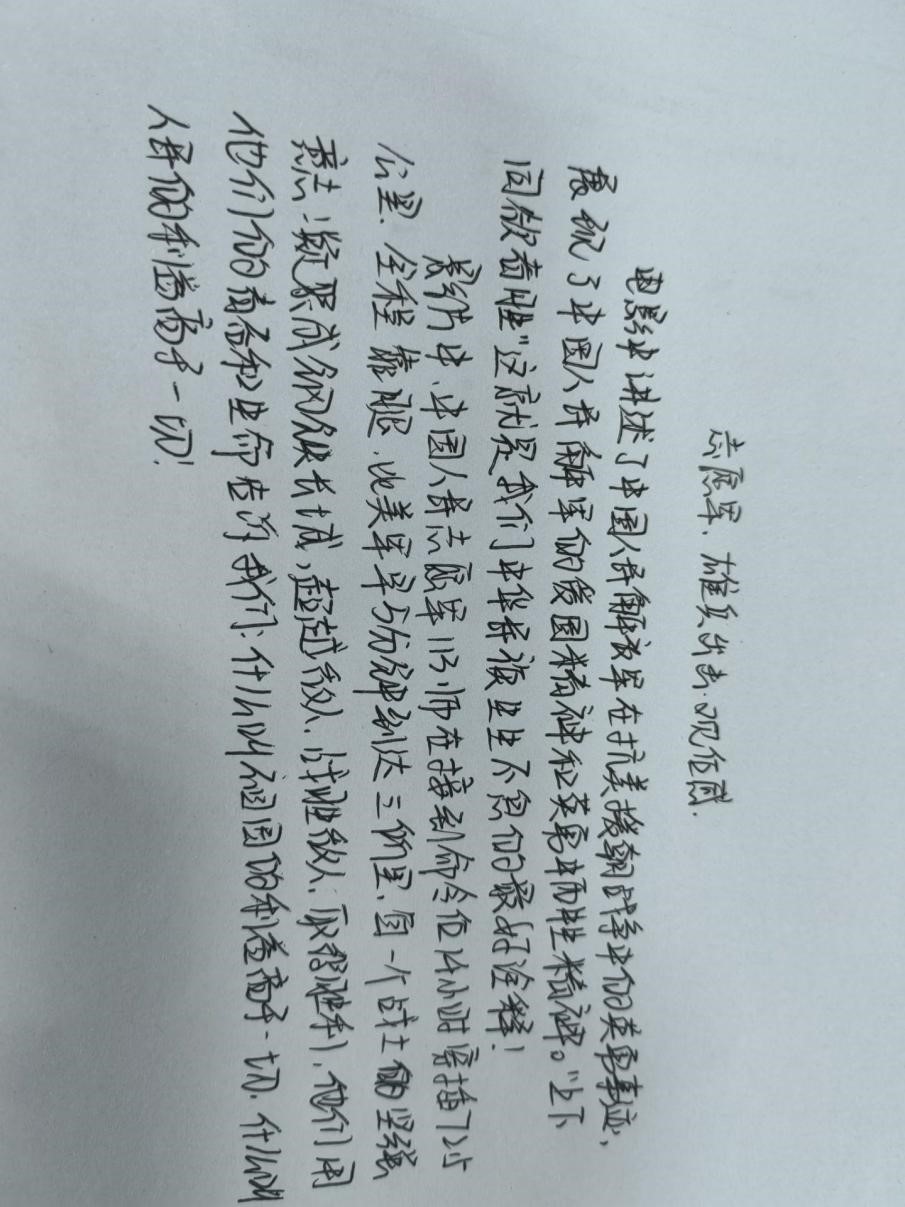 志愿军、雄兵出击.观后感.
电影中讲述了中国人民解放军在抗美援朝战争中的英勇事迹,
展现了中国人民解军的爱国精神和英勇牺牲精神。"上下
同欲者胜"这就是我们中华民族生生不息的最好诠释!
影片中、中国人民志愿军113师在接到命令后14小时穿插72.5
公里、全程靠腿、比美军早5分钟到达三所里、每一个战士的坚强
意志凝聚成钢铁长城,超过敌人、战胜敌人、取得胜利、他们用
他们的青春和生命告诉我们:什么叫祖国的利益高于一切、什么叫
人民的利益高于一切!